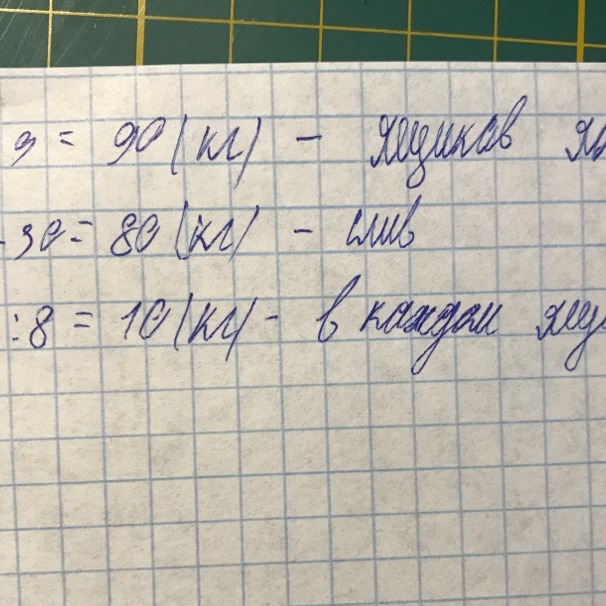 9 = 90 (кг) - ящиков
- 90 = 80 (кг) - слив
: 8 = 10 (кг) - в каждом